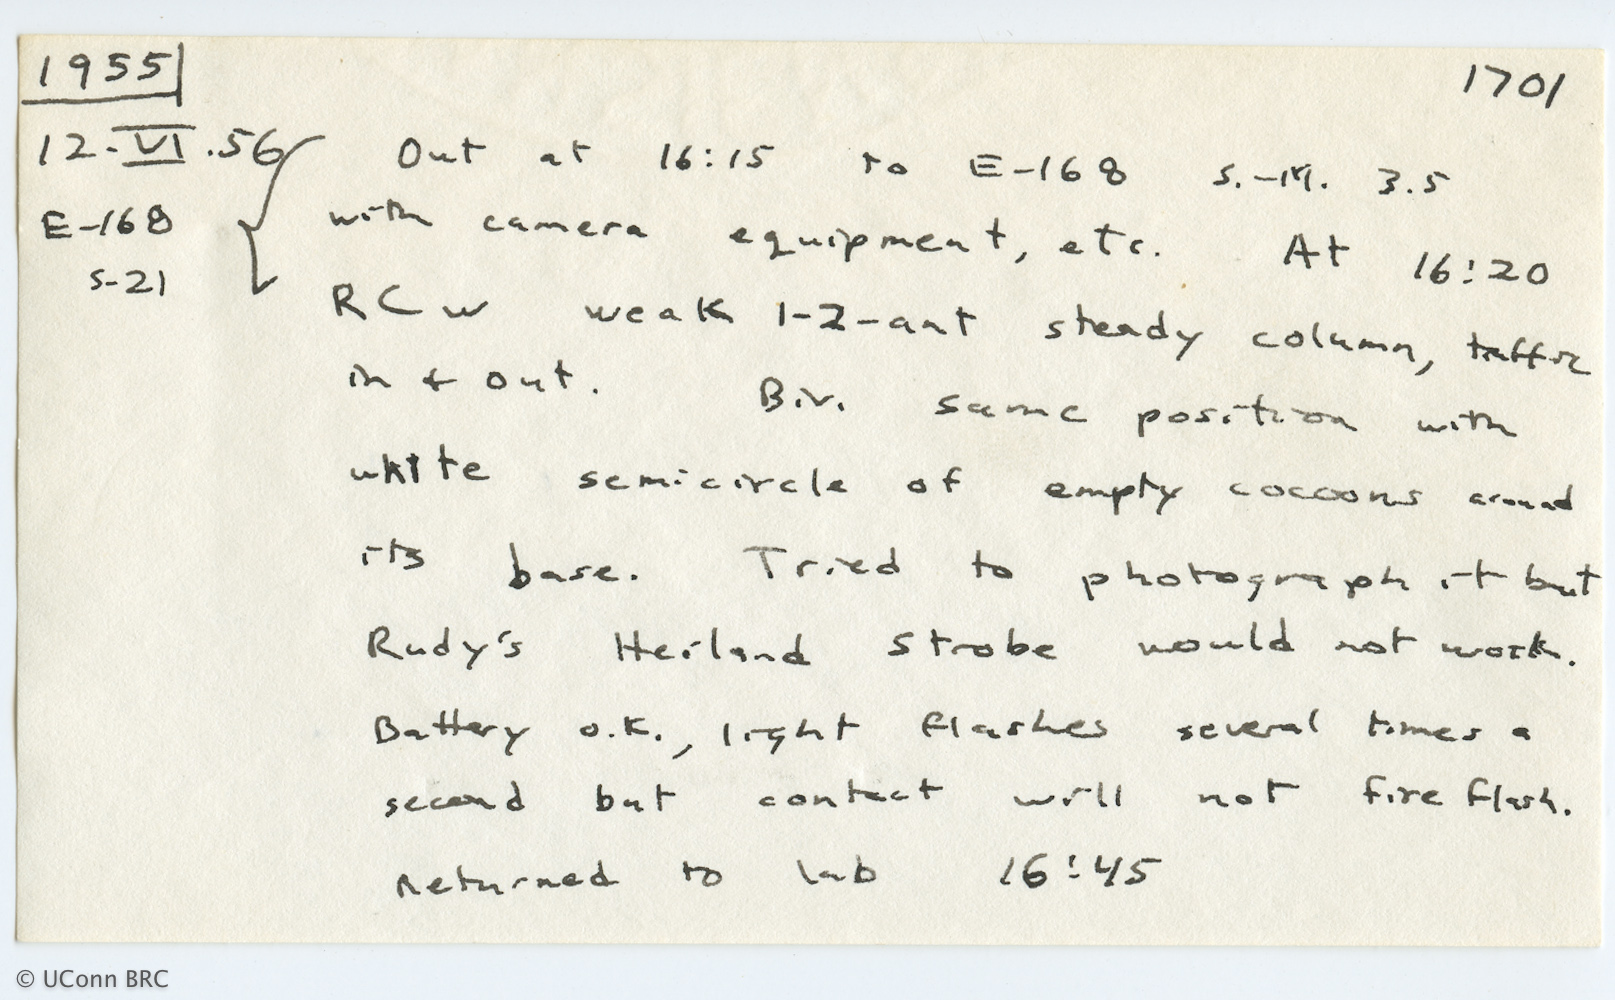 1955
1701
12.VI.56
E-168
S-21
Out at 16:15 to E-168 S.-M. 3.5
with camera equipment, etc. At 16:20
RCW weak 1-2-ant steady column, traffic
in & out. Biv. same position with
white semicircle of empty cocoons around
its base. Tried to photograph it but
Rudy's Heiland Strobe would not work.
Battery o.k., light flashes several times a
second but contact will not fire flash.
Returned to lab 16:45
© UConn BRC